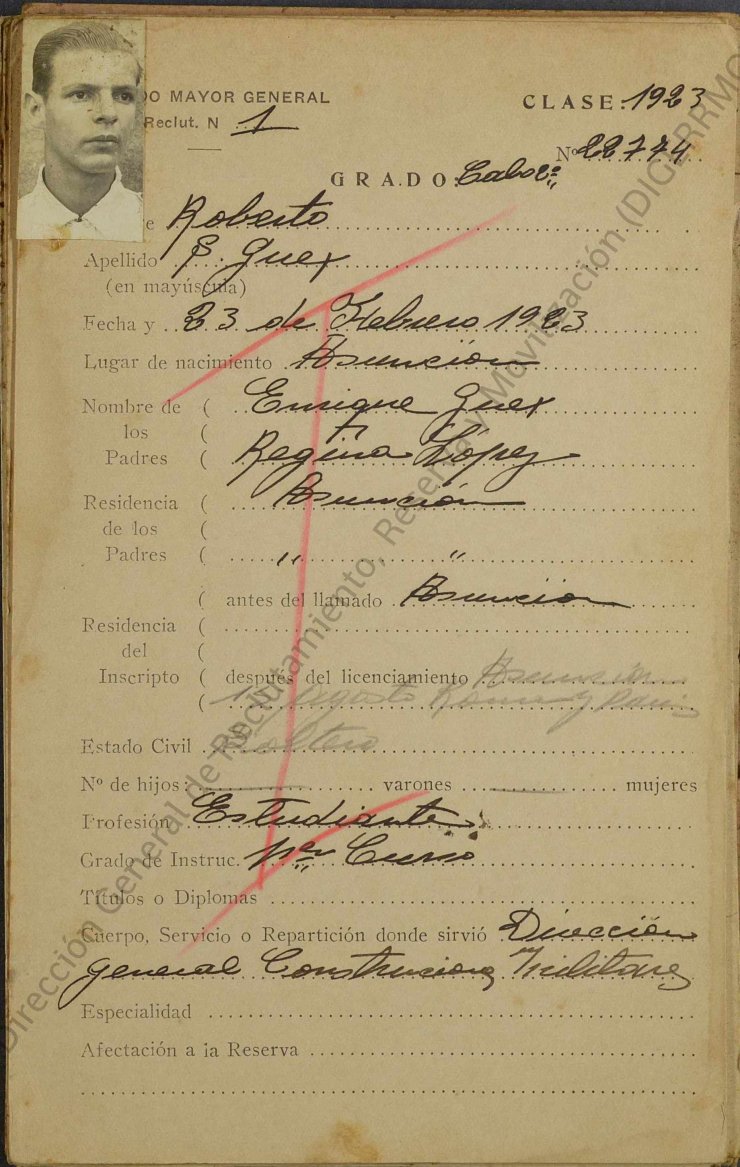 DO MAYOR GENERAL
Reclut. N 1
CLASE: 1923
Nº 22774
GRADO: Cabo 2º
e Roberto
Apellido Guex
(en mayúscula)
Fecha y 23 de Febrero 1923
Lugar de nacimiento Asunción
Nombre de ( Enrique Guex
los (
Padres ( Regina López
Residencia ( Asunción
de los (
Padres ( " "
( antes del llamado Asunción
Residencia (
del (
Inscripto ( después del licenciamiento Asunción
( 15 Agosto
Estado Civil Soltero
Nº de hijos: varones mujeres
Profesión Estudiante
Grado de Instruc. Curso
Títulos o Diplomas
Cuerpo, Servicio o Repartición donde sirvió Dirección
General Construcciones Militares
Especialidad
Afectación a la Reserva
Dirección General de Reclutamiento, Reserva y Movilización (DIGERRMO